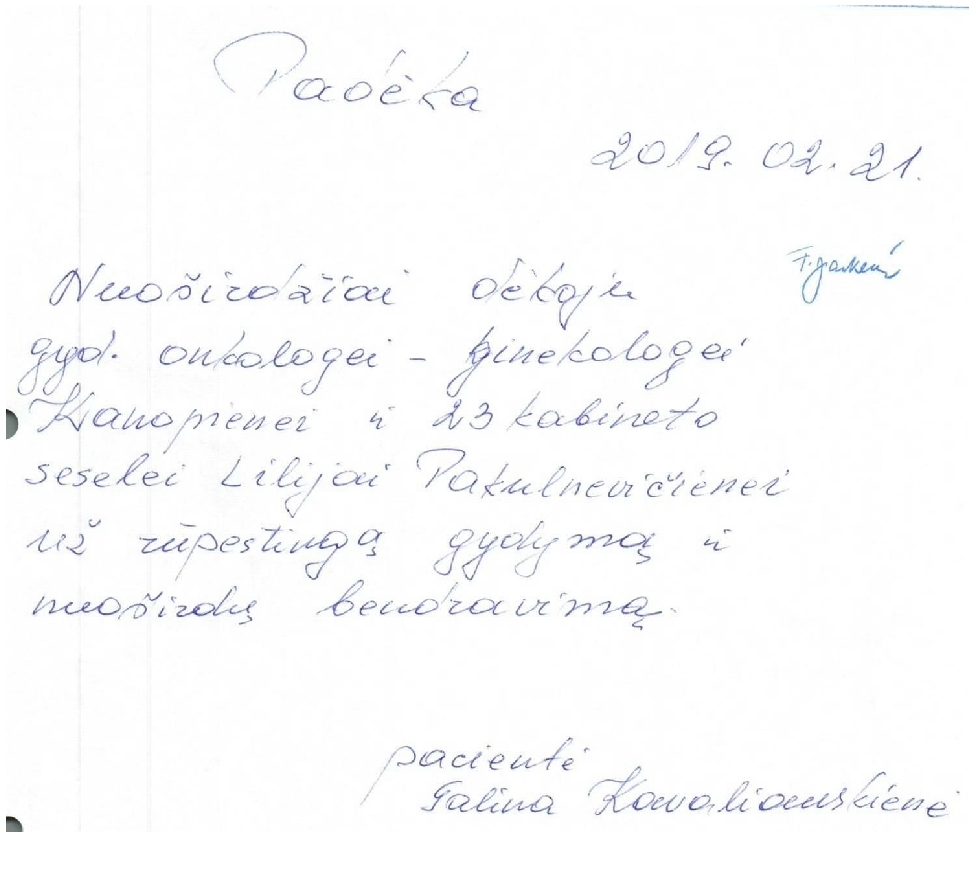 Padėka
2019. 02. 21.
Nuoširdžiai dėkoju
gyd. onkologei - ginekologei
Kanopienei ir 23 kabineto
seselei Lilijai Pakulnevičienei
už rūpestingą gydymą ir
nuoširdų bendravimą.
pacientė
Galina Kavaliauskienė